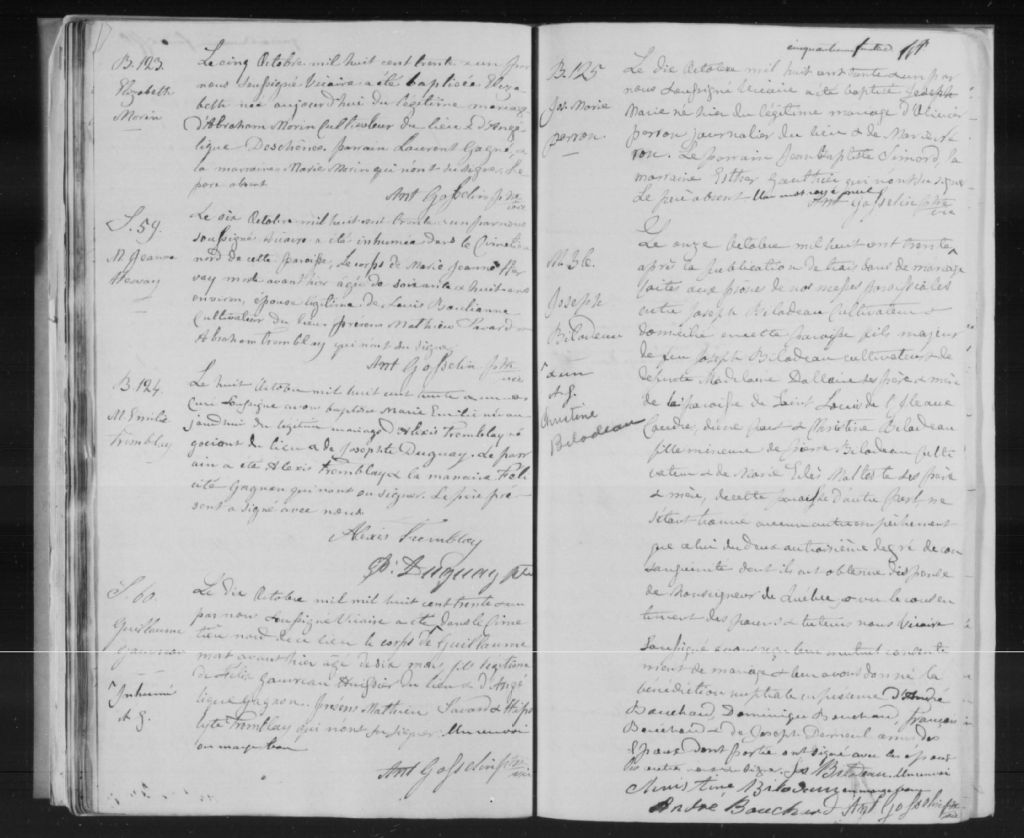 B. 123.
Elizabeth
Morin
Le cinq Octobre mil huit cent trente & un par
nous Soussigné Vicaire a été baptisée Eliza
beth née aujourd'hui du légitime mariage
d'Abraham Morin Cultivateur du lieu & d'Angé
lique Deschênes. parrain Laurent Gagné, &
la marraine Marie Morin qui n'ont su signer. Le
père absent
Ant Gosselin ptre
vic
S. 59.
M. Jeanne
Hervay
Le six Octobre mil huit cent trente & un par nous
soussigné Vicaire a été inhumé dans le Cimetière
nord de cette paroisse, Le corps de Marie Jeanne Her
vay morte avant hier agée de soixante & huit ans
environ, épouse légitime de Louis
Cultivateur du lieu présens Mathieu Savard &
Abraham Tremblay qui n'ont su signer
Ant Gosselin ptre
vic
B. 124.
M. Emilie
Tremblay
Le huit Octobre mil huit cent trente & un nous
Curé Soussigné avons baptisé Marie Emilie née au
jourd'hui du légitime mariage d'Alexis Tremblay né
gociant du lieu & de Josephte Duguay. Le parr
ain a été Alexis Tremblay & la marraine Féli
cité Gagnon qui n'ont su signer. Le père pré
sent a signé avec nous
Alexis Tremblay
Duguay ptre
S. 60.
Guillaume
Gauvreau
Le dix Octobre mil mil huit cent trente & un
par nous Soussigné Vicaire a été dans le Cime
tière nord de ce lieu le corps de Guillaume
mort avant hier agé de dix mois, fils légitime
de Félix Gauvreau Huissier du lieu & d'Angé
lique Gagnon. présens Mathieu Savard & Hipo
lyte Tremblay qui n'ont su signer. Un renvoi
en marge bon
Inhumé
A G.
Ant Gosselin ptre
vic
B. 125
Jos. Marie
perron
Le dix Octobre mil huit cent trente & un par
nous Soussigné Vicaire a été baptisé Joseph
Marie né hier du légitime mariage d'Olivier
perron journalier du lieu & de Marie
ron. Le parrain Jean Baptiste Simard, la
marraine Esther Gauthier qui n'ont su signer
Le père absent Un mot rayé nul
Ant Gosselin ptre
vic
M. 36.
Joseph
Bilodeau
& un
A G.
Christine
Bilodeau
Le onze Octobre mil huit cent trente
après la publication de trois bans de mariage
faites aux prones de nos messes paroissiales
entre Joseph Bilodeau Cultivateur &
domicilié en cette paroisse fils majeur
de feu Joseph Bilodeau cultivateur & de
défunte Madelaine Dallaire ses père & mère
de la paroisse de Saint Louis de l'Isle aux
Coudre, d'une part & Christine Bilodeau
fille mineure de Pierre Bilodeau Culti
vateur & de Marie ses père
& mère, de cette paroisse d'autre part, ne
s'étant trouvé aucun autre empêchement
que celui du deux au troisième degré de con
sanguinité dont ils ont obtenu dispense
de Monseigneur de Québec, & vu le consen
tement des parens & tuteurs nous Vicaire
Soussigné avons reçu leur mutuel consente
ment de mariage & leur avons donné la
bénédiction nuptiale en présence d'André
Bouchard, Dominique Bouchard, François
Bouchard & de Joseph amis des
Epoux dont partie ont signé avec les époux
les autres Jos Bilodeau. Un renvoi
Christine Bilodeau en marge bon
André Bouchard Ant Gosselin ptre
vic